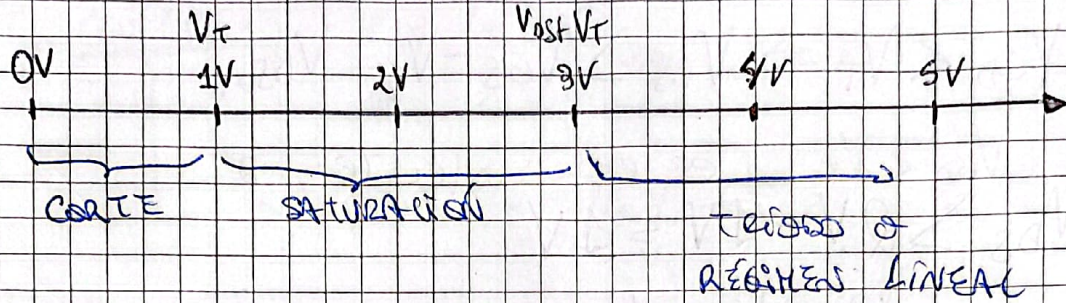 VT VDS+VT
0V 1V 2V 3V 4V 5V
CORTE SATURACIÓN TRIODO O
RÉGIMEN LINEAL